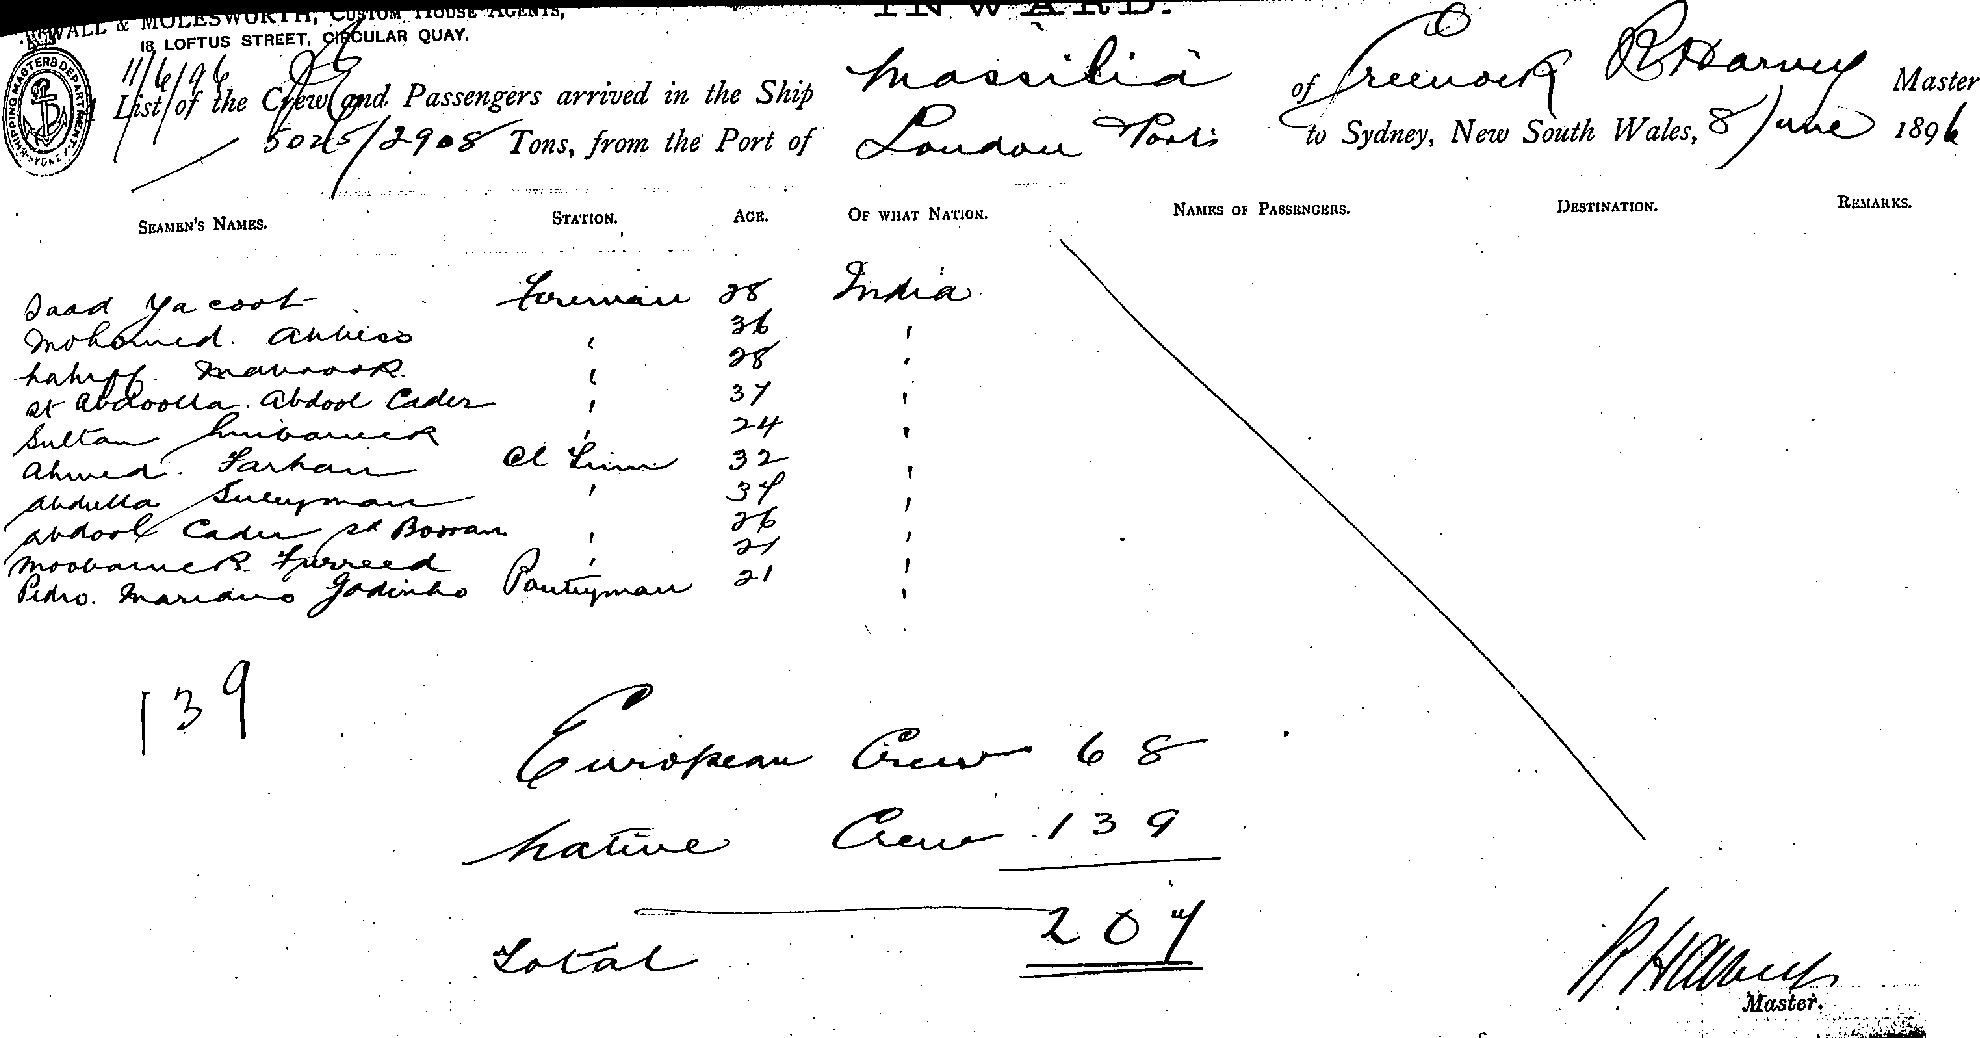 INWARD.
& MOLESWORTH, CUSTOM HOUSE AGENTS,
18, LOFTUS STREET, CIRCULAR QUAY.
11/6/96
List of the Crew and Passengers arrived in the Ship Massilia of Greenock R Harvey Master
5026/2908 Tons, from the Port of London & Ports to Sydney, New South Wales, 8 June 1896
SEAMEN'S NAMES. STATION. AGE. OF WHAT NATION. NAMES OF PASSENGERS. DESTINATION. REMARKS.
Saad Yacoot Fireman 28 India
Mohamed. 36 "
28 "
Abdoolla. Abdool Cader 37 "
Sultan Mubarrick 24 "
Ahmed. Farhan 32 "
Abdulla Suleyman 34 "
Abdool Cader 26 "
Moobarrick Furreed 21 "
Pedro. Mariano Godinho Pantryman 21 "
139
European Crew 68
Native Crew 139
Total 207
R Harvey
Master.